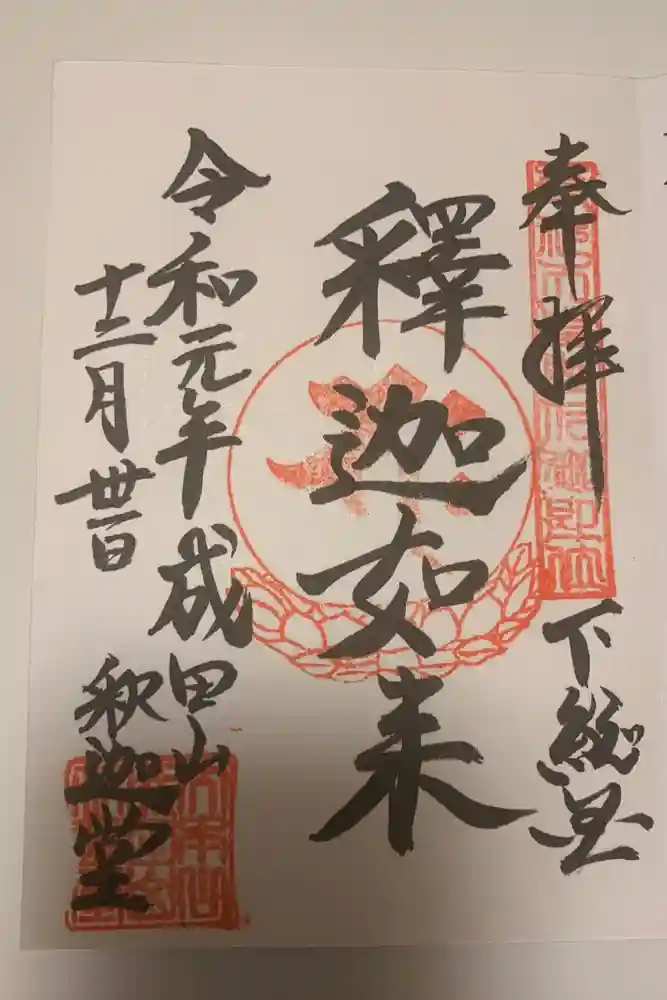 奉拝 下総国
釋迦如来
令和元年 成田山
十二月卅一日 釈迦堂